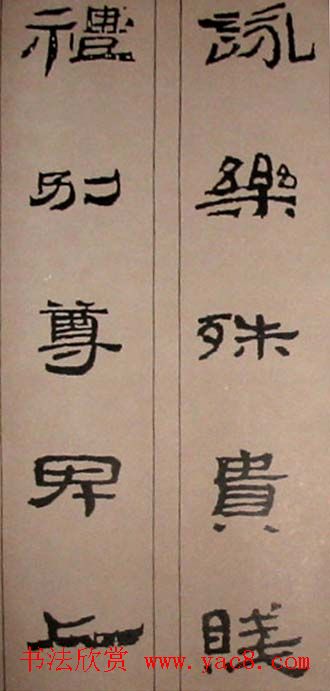 詠樂殊貴賤
禮別尊卑上
书法欣赏 www.yac8.com